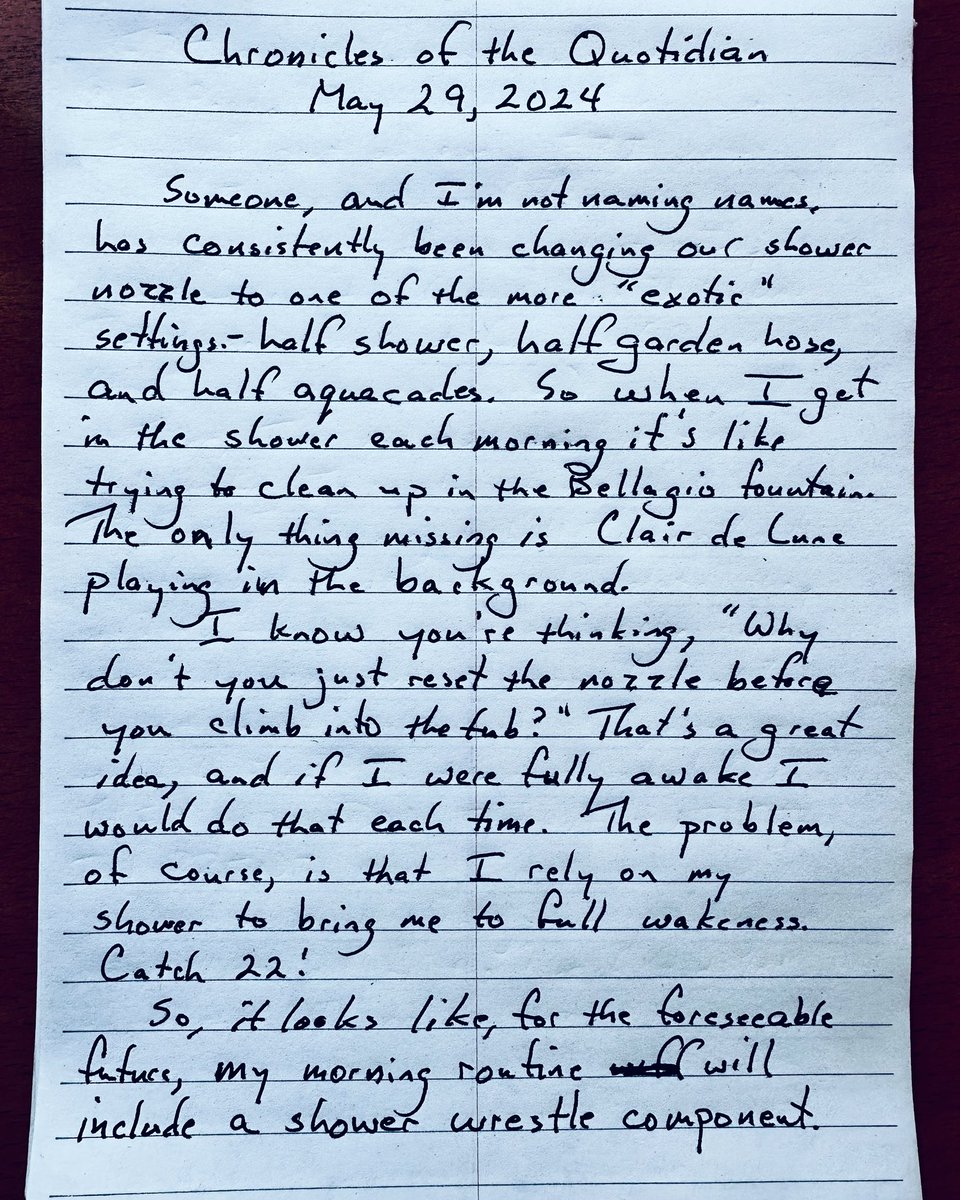 Chronicles of the Quotidian
May 29, 2024
Someone, and I'm not naming names,
has consistently been changing our shower
nozzle to one of the more "exotic"
settings - half shower, half garden hose,
and half aquacades. So when I get
in the shower each morning it's like
trying to clean up in the Bellagio fountain.
The only thing missing is Clair de Lune
playing in the background.
I know you're thinking, "Why
don't you just reset the nozzle before
you climb into the tub?" That's a great
idea, and if I were fully awake I
would do that each time. The problem,
of course, is that I rely on my
shower to bring me to full wakeness.
Catch 22!
So, it looks like, for the foreseeable
future, my morning routine will
include a shower wrestle component.